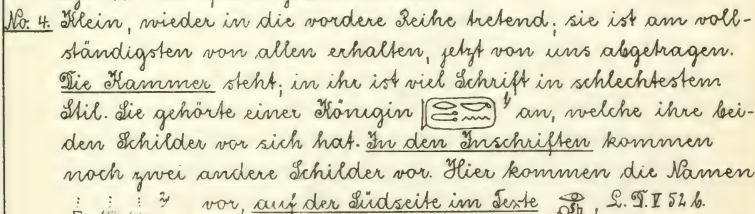 No. 4. Klein, wieder in die vordere Reihe tretend; sie ist am voll-
ständigsten von allen erhalten, jetzt von uns abgetragen.
Die Kammer steht; in ihr ist viel Schrift in schlechtestem
Stil. Sie gehörte einer Königin an, welche ihre bei-
den Schilder vor sich hat. In den Inschriften kommen
noch zwei andere Schilder vor. Hier kommen die Namen
vor, auf der Südseite im Texte , L. D. V 52 b.